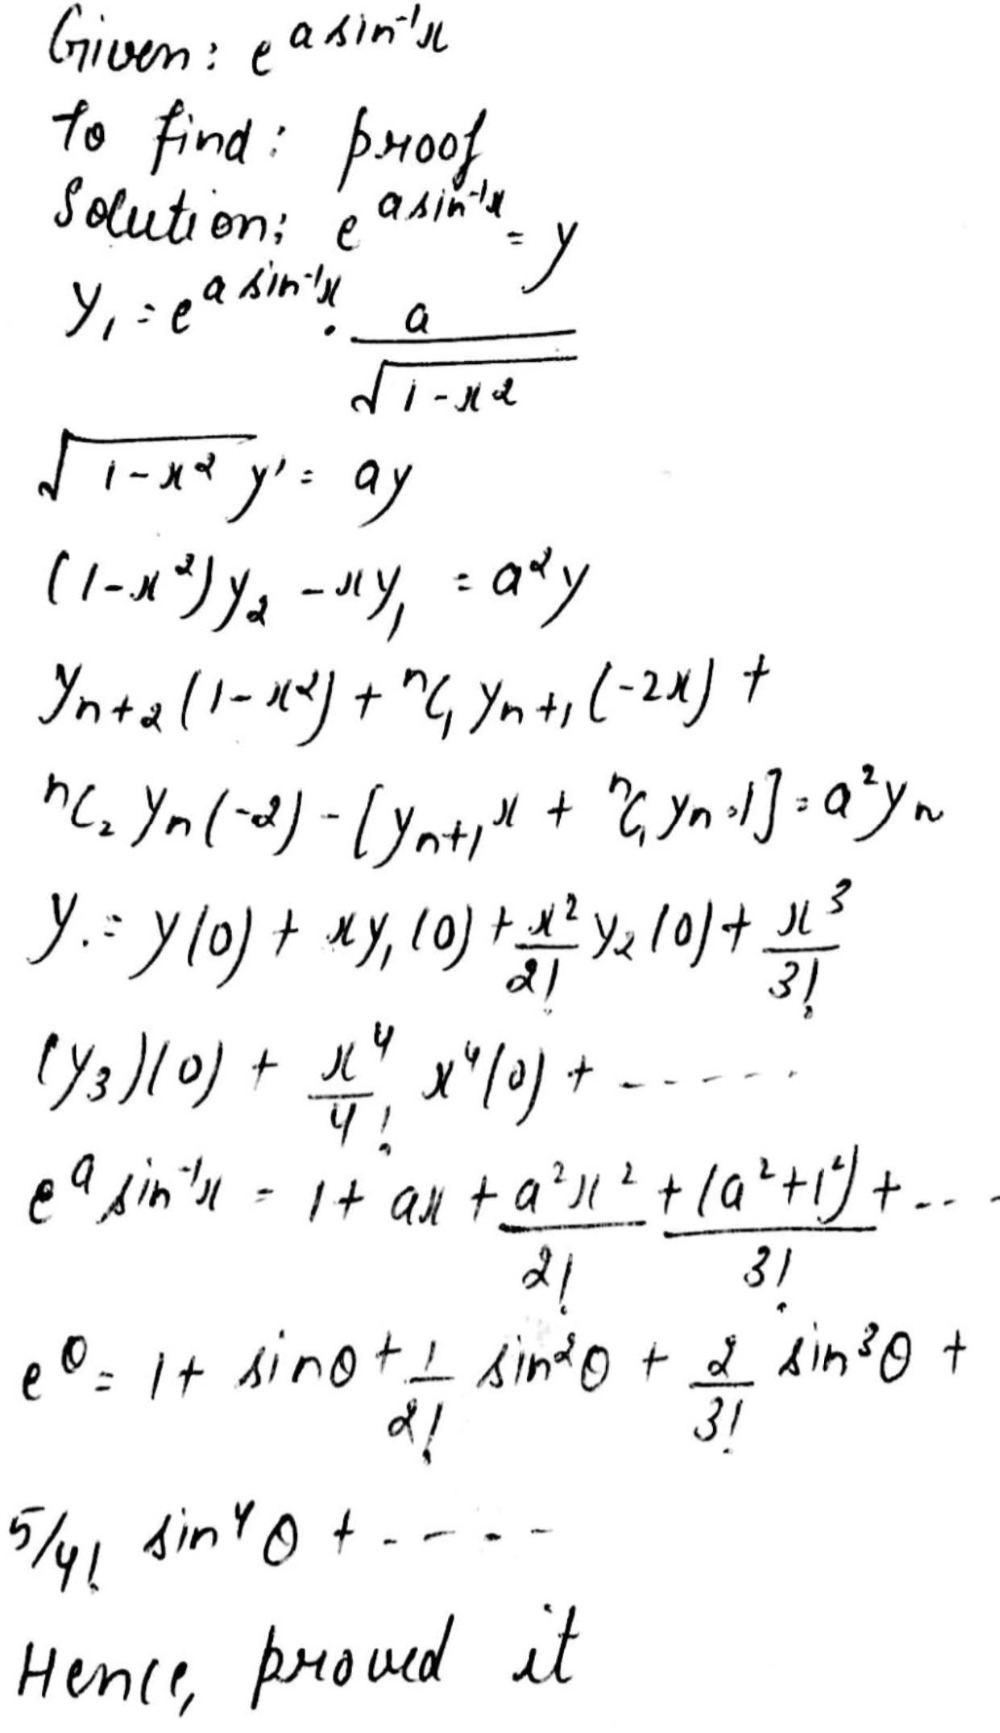 Given: e^{a sin⁻¹x}
To find: proof
Solution: e^{a sin⁻¹x} = y
y₁ = e^{a sin⁻¹x} · a/√(1-x²)
√(1-x²) y' = ay
(1-x²)y₂ - xy₁ = a²y
yₙ₊₂(1-x²) + ⁿC₁ yₙ₊₁(-2x) +
ⁿC₂ yₙ(-2) - [yₙ₊₁x + ⁿC₁yₙ.1] = a²yₙ
y. = y(0) + xy₁(0) + x²/2! y₂(0) + x³/3!
(y₃)(0) + x⁴/4! x⁴(0) + ......
e^{a sin⁻¹x} = 1 + ax + a²x²/2! + (a²+1²)/3! + ...
e^θ = 1 + sinθ + 1/2! sin²θ + 2/3! sin³θ +
5/4! sin⁴θ + .....
Hence, proved it